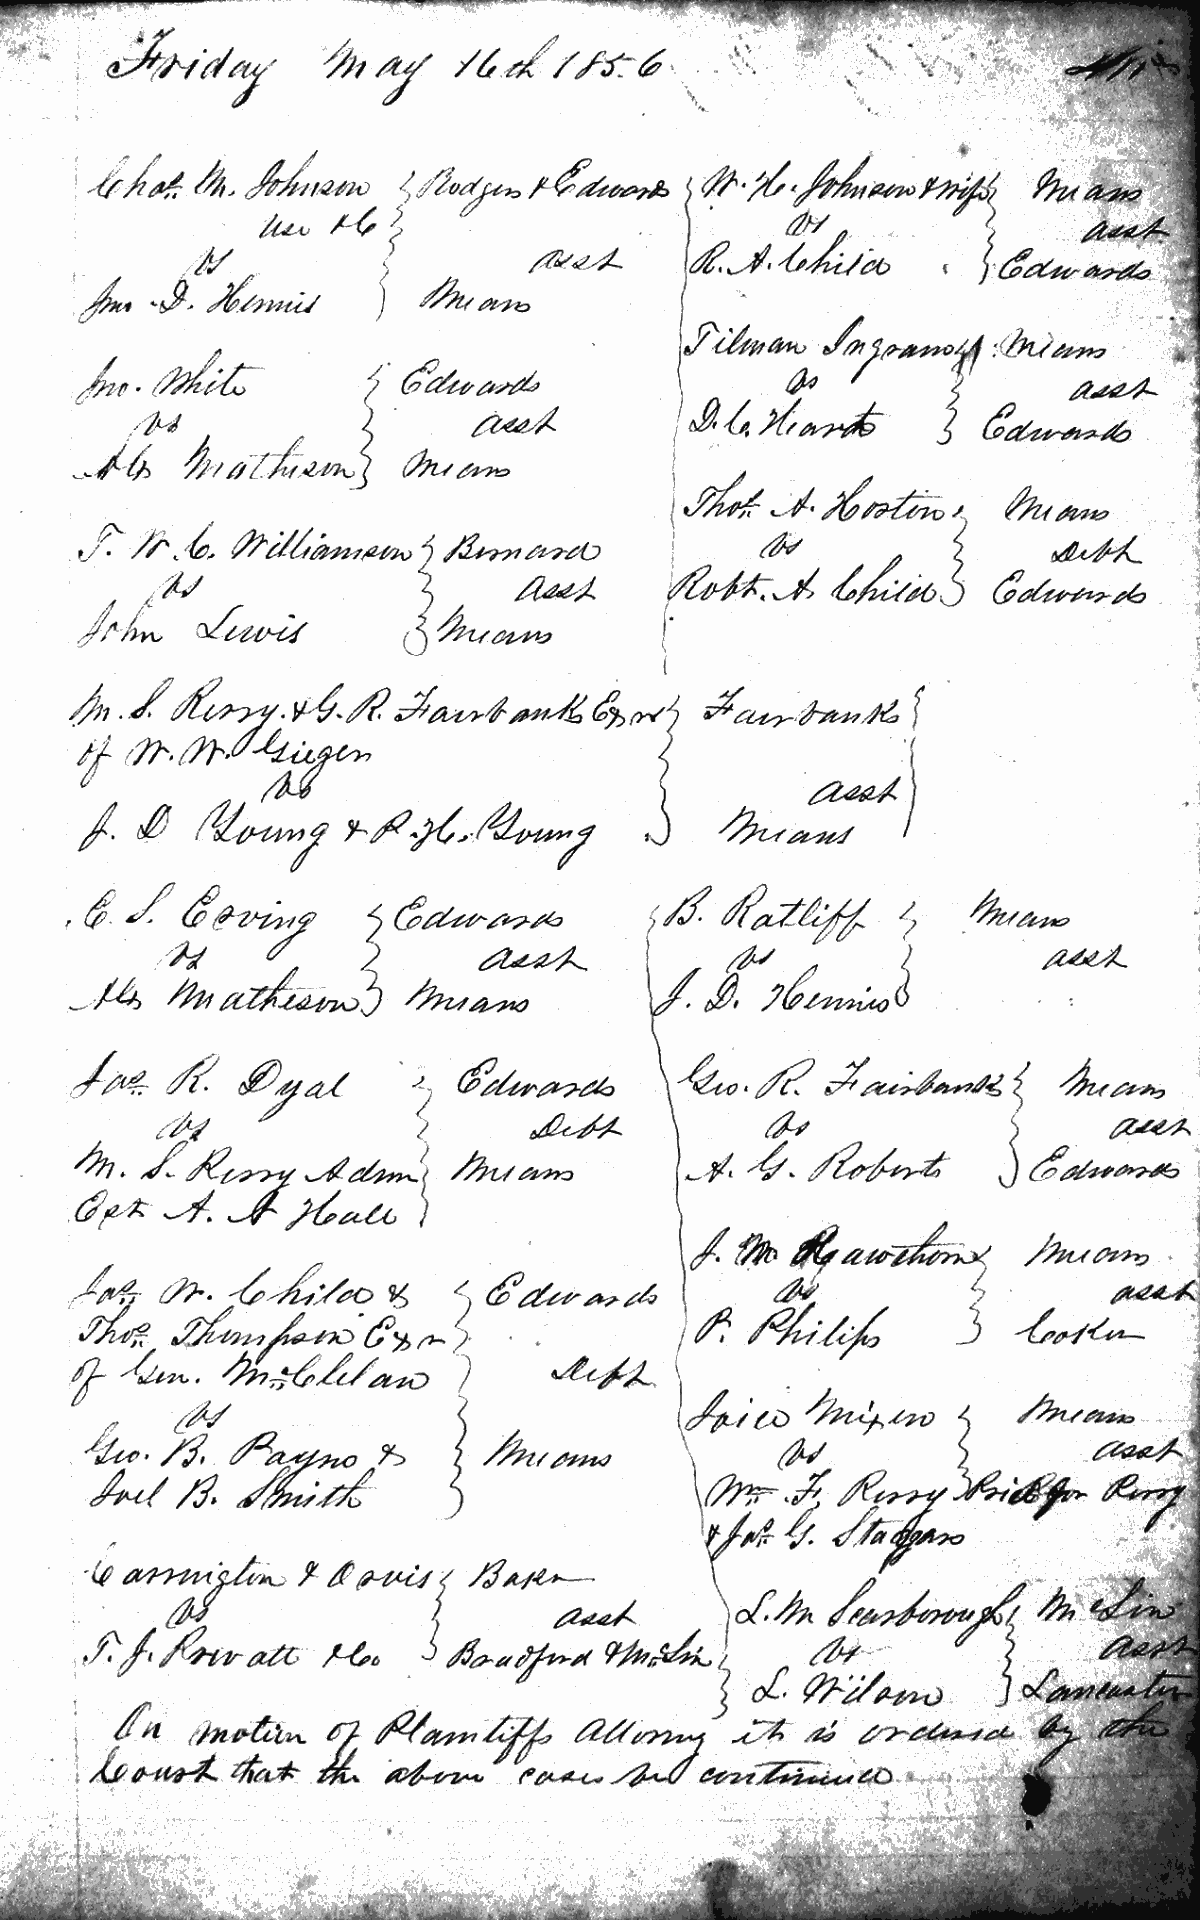 Friday May 16th 1856
Chas. M. Johnson Rodgers & Edwards
use &c
vs asst
Jno. D. Hennis Means
Jno. White Edwards
vs asst
Alex Matheson Means
T. W. C. Williamson Bernard
vs asst
John Lewis Means
W. H. Johnson & wife Means
vs asst
R. A. Child Edwards
Tilman Ingram Means
vs asst
D. C. Hearts Edwards
Thos. A. Hostin Means
vs Debt
Robt. A Child Edwards
M. S. Perry & G. R. Fairbanks Exrs Fairbanks
of W. W. Gieger
vs asst
J. D Young & P. H. Young Means
E. S. Erving Edwards
vs asst
Alex Matheson Means
Jas. R. Dyal Edwards
vs Debt
M. S. Perry Admr Means
Est A. A Hall
Jas. W. Child & Edwards
Thos. Thompson Exr
of Gen. McClelan Debt
vs
Geo. B. Payne & Means
Joel B. Smith
Carrington & Orvis Baker
vs asst
T. J. Prevatt & Co Bradford & McLin
B. Ratliff Means
vs asst
J. D. Hennis
Geo. R. Fairbanks Means
vs asst
A. G. Roberts Edwards
J. M. Hawthorn Means
vs asst
P. Philips Coker
Joice Mixen Means
vs asst
Wm. F. Perry for Perry
& Jas. G. Staggars
L. M Scarborough McLin
vs asst
L. Wilson Lancaster
On motion of Plaintiffs Attorney it is ordered by the
Court that the above cases be continued